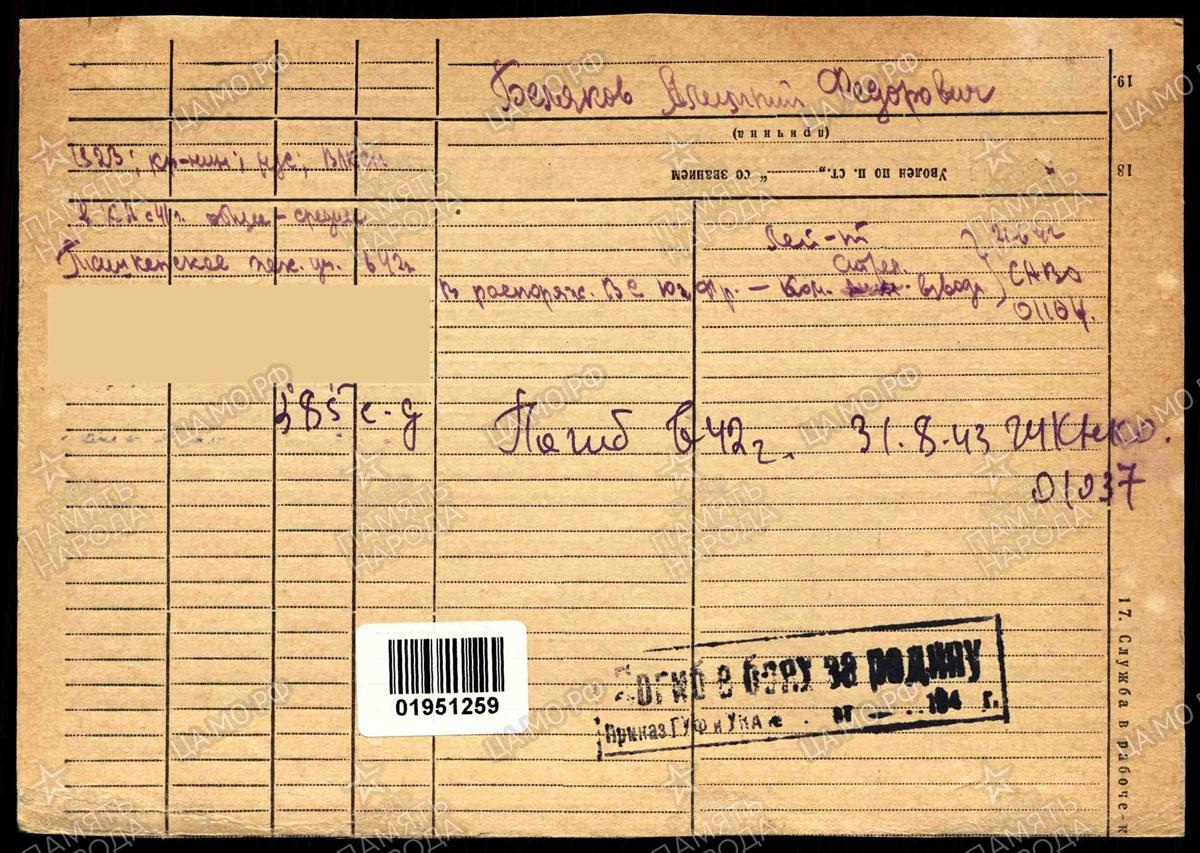 Беляков Федорович
19.
(причина)
18 Уволен по п. ст. „ “ со званием
1923; кр-нин; рус; ВЛКСМ
в КА с 41 г. общее - среднее
Лей-т
Ташкентское пех. уч. в 42 г.
стрел.
в распоряж. ВС Юж. Фр. - Ком. взвода
САВО
01104.
385 с. д
Погиб в 42 г. 31.8.43 ГУК НКО.
01037
17. Служба в рабоче-к
Погиб в боях за родину
Приказ ГУФ и УКА № от 194 г.
01951259
ЦАМО РФ
ПАМЯТЬ НАРОДА